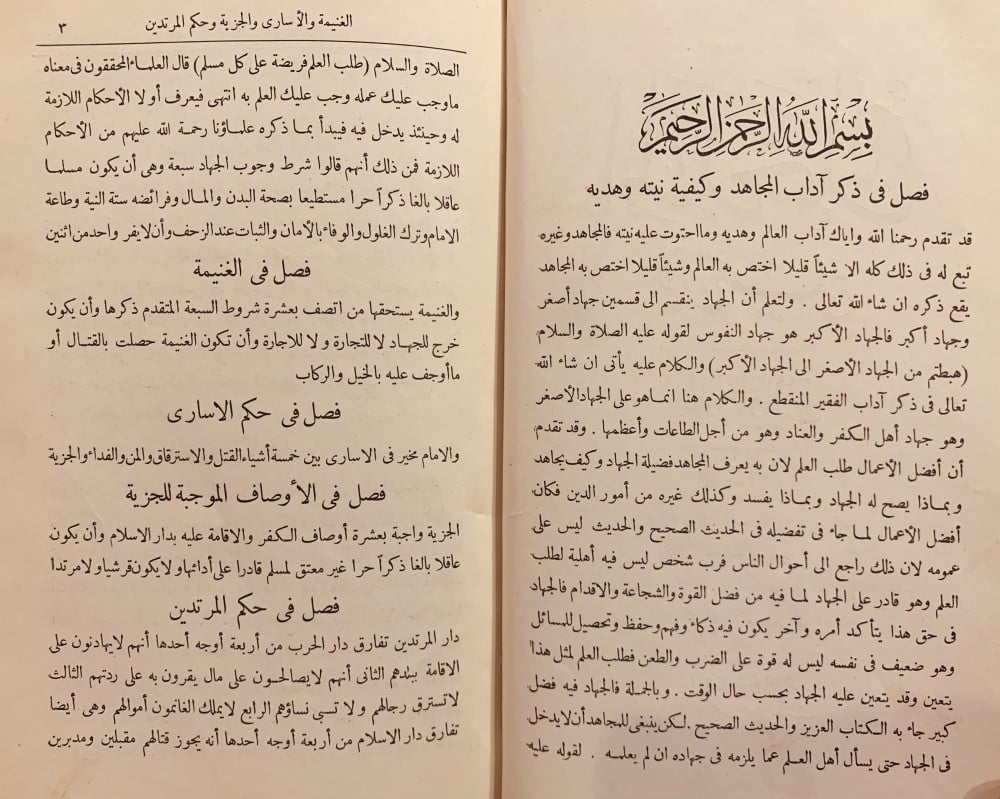 بسم الله الرحمن الرحيم
فصل فى ذكر آداب المجاهد وكيفية نيته وهديه
قد تقدم رحمنا الله واياك آداب العالم وهديه وما احتوت عليه نيته فالمجاهد وغيره
تبع له فى ذلك كله الا شيئاً قليلا اختص به العالم وشيئاً قليلا اختص به المجاهد
يقع ذكره ان شاء الله تعالى . ولتعلم أن الجهاد ينقسم الى قسمين جهاد أصغر
وجهاد أكبر فالجهاد الأكبر هو جهاد النفوس لقوله عليه الصلاة والسلام
(هبطتم من الجهاد الأصغر الى الجهاد الأكبر) والكلام عليه يأتى ان شاء الله
تعالى فى ذكر آداب الفقير المنقطع . والكلام هنا انما هو على الجهاد الأصغر
وهو جهاد أهل الكفر والعناد وهو من أجل الطاعات وأعظمها . وقد تقدم
أن أفضل الأعمال طلب العلم لان به يعرف المجاهد فضيلة الجهاد وكيف يجاهد
وبماذا يصح له الجهاد وبماذا يفسد وكذلك غيره من أمور الدين فكان
أفضل الأعمال لما جاء فى تفضيله فى الحديث الصحيح والحديث ليس على
عمومه لان ذلك راجع الى أحوال الناس فرب شخص ليس فيه أهلية لطلب
العلم وهو قادر على الجهاد لما فيه من فضل القوة والشجاعة والاقدام فالجهاد
فى حق هذا يتأكد أمره وآخر يكون فيه ذكاء وفهم وحفظ وتحصيل للمسائل
وهو ضعيف فى نفسه ليس له قوة على الضرب والطعن فطلب العلم لمثل هذا
يتعين وقد يتعين عليه الجهاد بحسب حال الوقت . وبالجملة فالجهاد فيه فضل
كبير جاء به الكتاب العزيز والحديث الصحيح . لكن ينبغى للمجاهد أن لا يدخل
فى الجهاد حتى يسأل أهل العلم عما يلزمه فى جهاده ان لم يعلمه . لقوله عليه
الغنيمة والأسارى والجزية وحكم المرتدين ٣
الصلاة والسلام (طلب العلم فريضة على كل مسلم) قال العلماء المحققون فى معناه
ماوجب عليك عمله وجب عليك العلم به انتهى فيعرف أولا الأحكام اللازمة
له وحينئذ يدخل فيه فيبدأ بما ذكره علماؤنا رحمة الله عليهم من الأحكام
اللازمة فمن ذلك أنهم قالوا شرط وجوب الجهاد سبعة وهى أن يكون مسلما
عاقلا بالغا ذكراً حرا مستطيعا بصحة البدن والمال وفرائضه ستة النية وطاعة
الامام وترك الغلول والوفاء بالأمان والثبات عند الزحف وأن لايفر واحد من اثنين
فصل فى الغنيمة
والغنيمة يستحقها من اتصف بعشرة شروط السبعة المتقدم ذكرها وأن يكون
خرج للجهاد لا للتجارة ولا للاجارة وأن تكون الغنيمة حصلت بالقتال أو
ماأوجف عليه بالخيل والركاب
فصل فى حكم الاسارى
والامام مخير فى الاسارى بين خمسة أشياء القتل والاسترقاق والمن والفداء والجزية
فصل فى الأوصاف الموجبة للجزية
الجزية واجبة بعشرة أوصاف الكفر والاقامة عليه بدار الاسلام وأن يكون
عاقلا بالغا ذكراً حرا غير معتق لمسلم قادرا على أدائها ولا يكون قرشيا ولا مرتدا
فصل فى حكم المرتدين
دار المرتدين تفارق دار الحرب من أربعة أوجه أحدها أنهم لايهادنون على
الاقامة ببلدهم الثانى أنهم لايصالحون على مال يقرون به على ردتهم الثالث
لاتسترق رجالهم ولا تسبى نساؤهم الرابع لايملك الغانمون أموالهم وهى أيضا
تفارق دار الاسلام من أربعة أوجه أحدها أنه يجوز قتالهم مقبلين ومدبرين